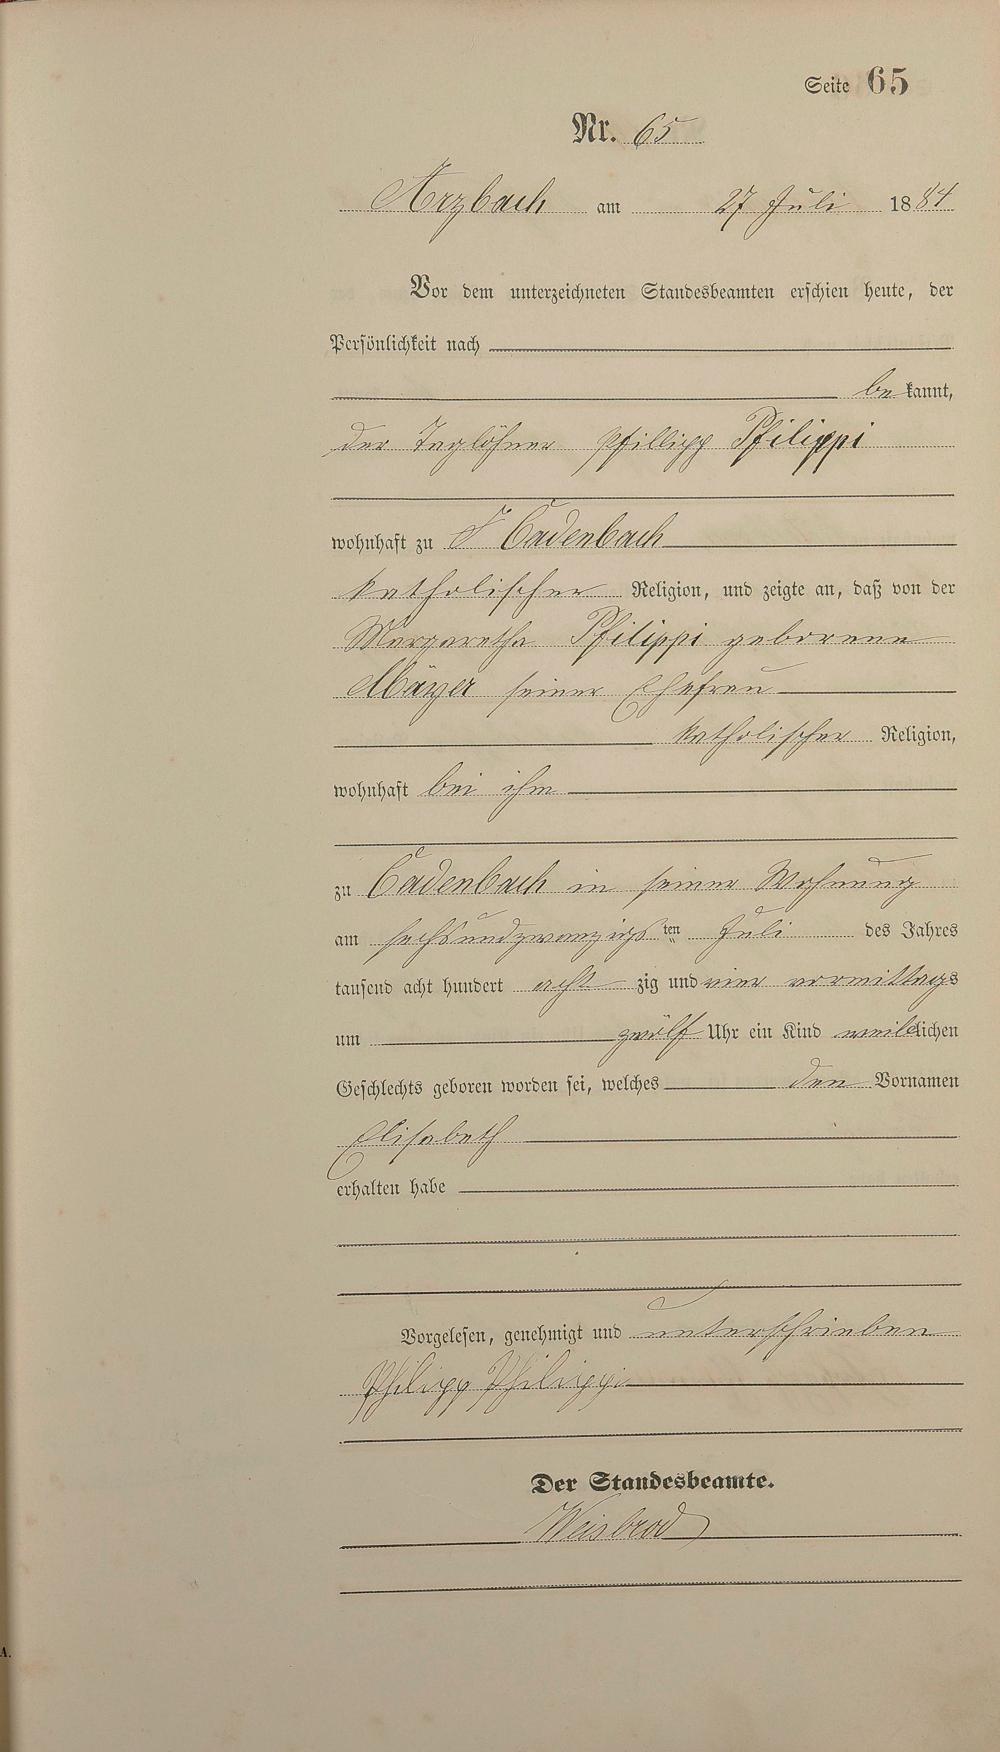 Seite 65
Nr. 65
Arzbach am 27 Juli 1884
Vor dem unterzeichneten Standesbeamten erschien heute, der
Persönlichkeit nach
be kannt,
der Taglöhner Phillipp Philippi
wohnhaft zu Cadenbach
katholischer Religion, und zeigte an, daß von der
Margaretha Philippi geborene
Mäyer seiner Ehefrau
katholischer Religion,
wohnhaft bei ihm
zu Cadenbach in seiner Wohnung
am sechsundzwanzigs ten Juli des Jahres
tausend acht hundert acht zig und vier vormittags
um zwölf Uhr ein Kind weiblichen
Geschlechts geboren worden sei, welches den Vornamen
Elisabeth
erhalten habe
Vorgelesen, genehmigt und unterschrieben
Philipp Philippi
Der Standesbeamte.
Weisbrod
A.